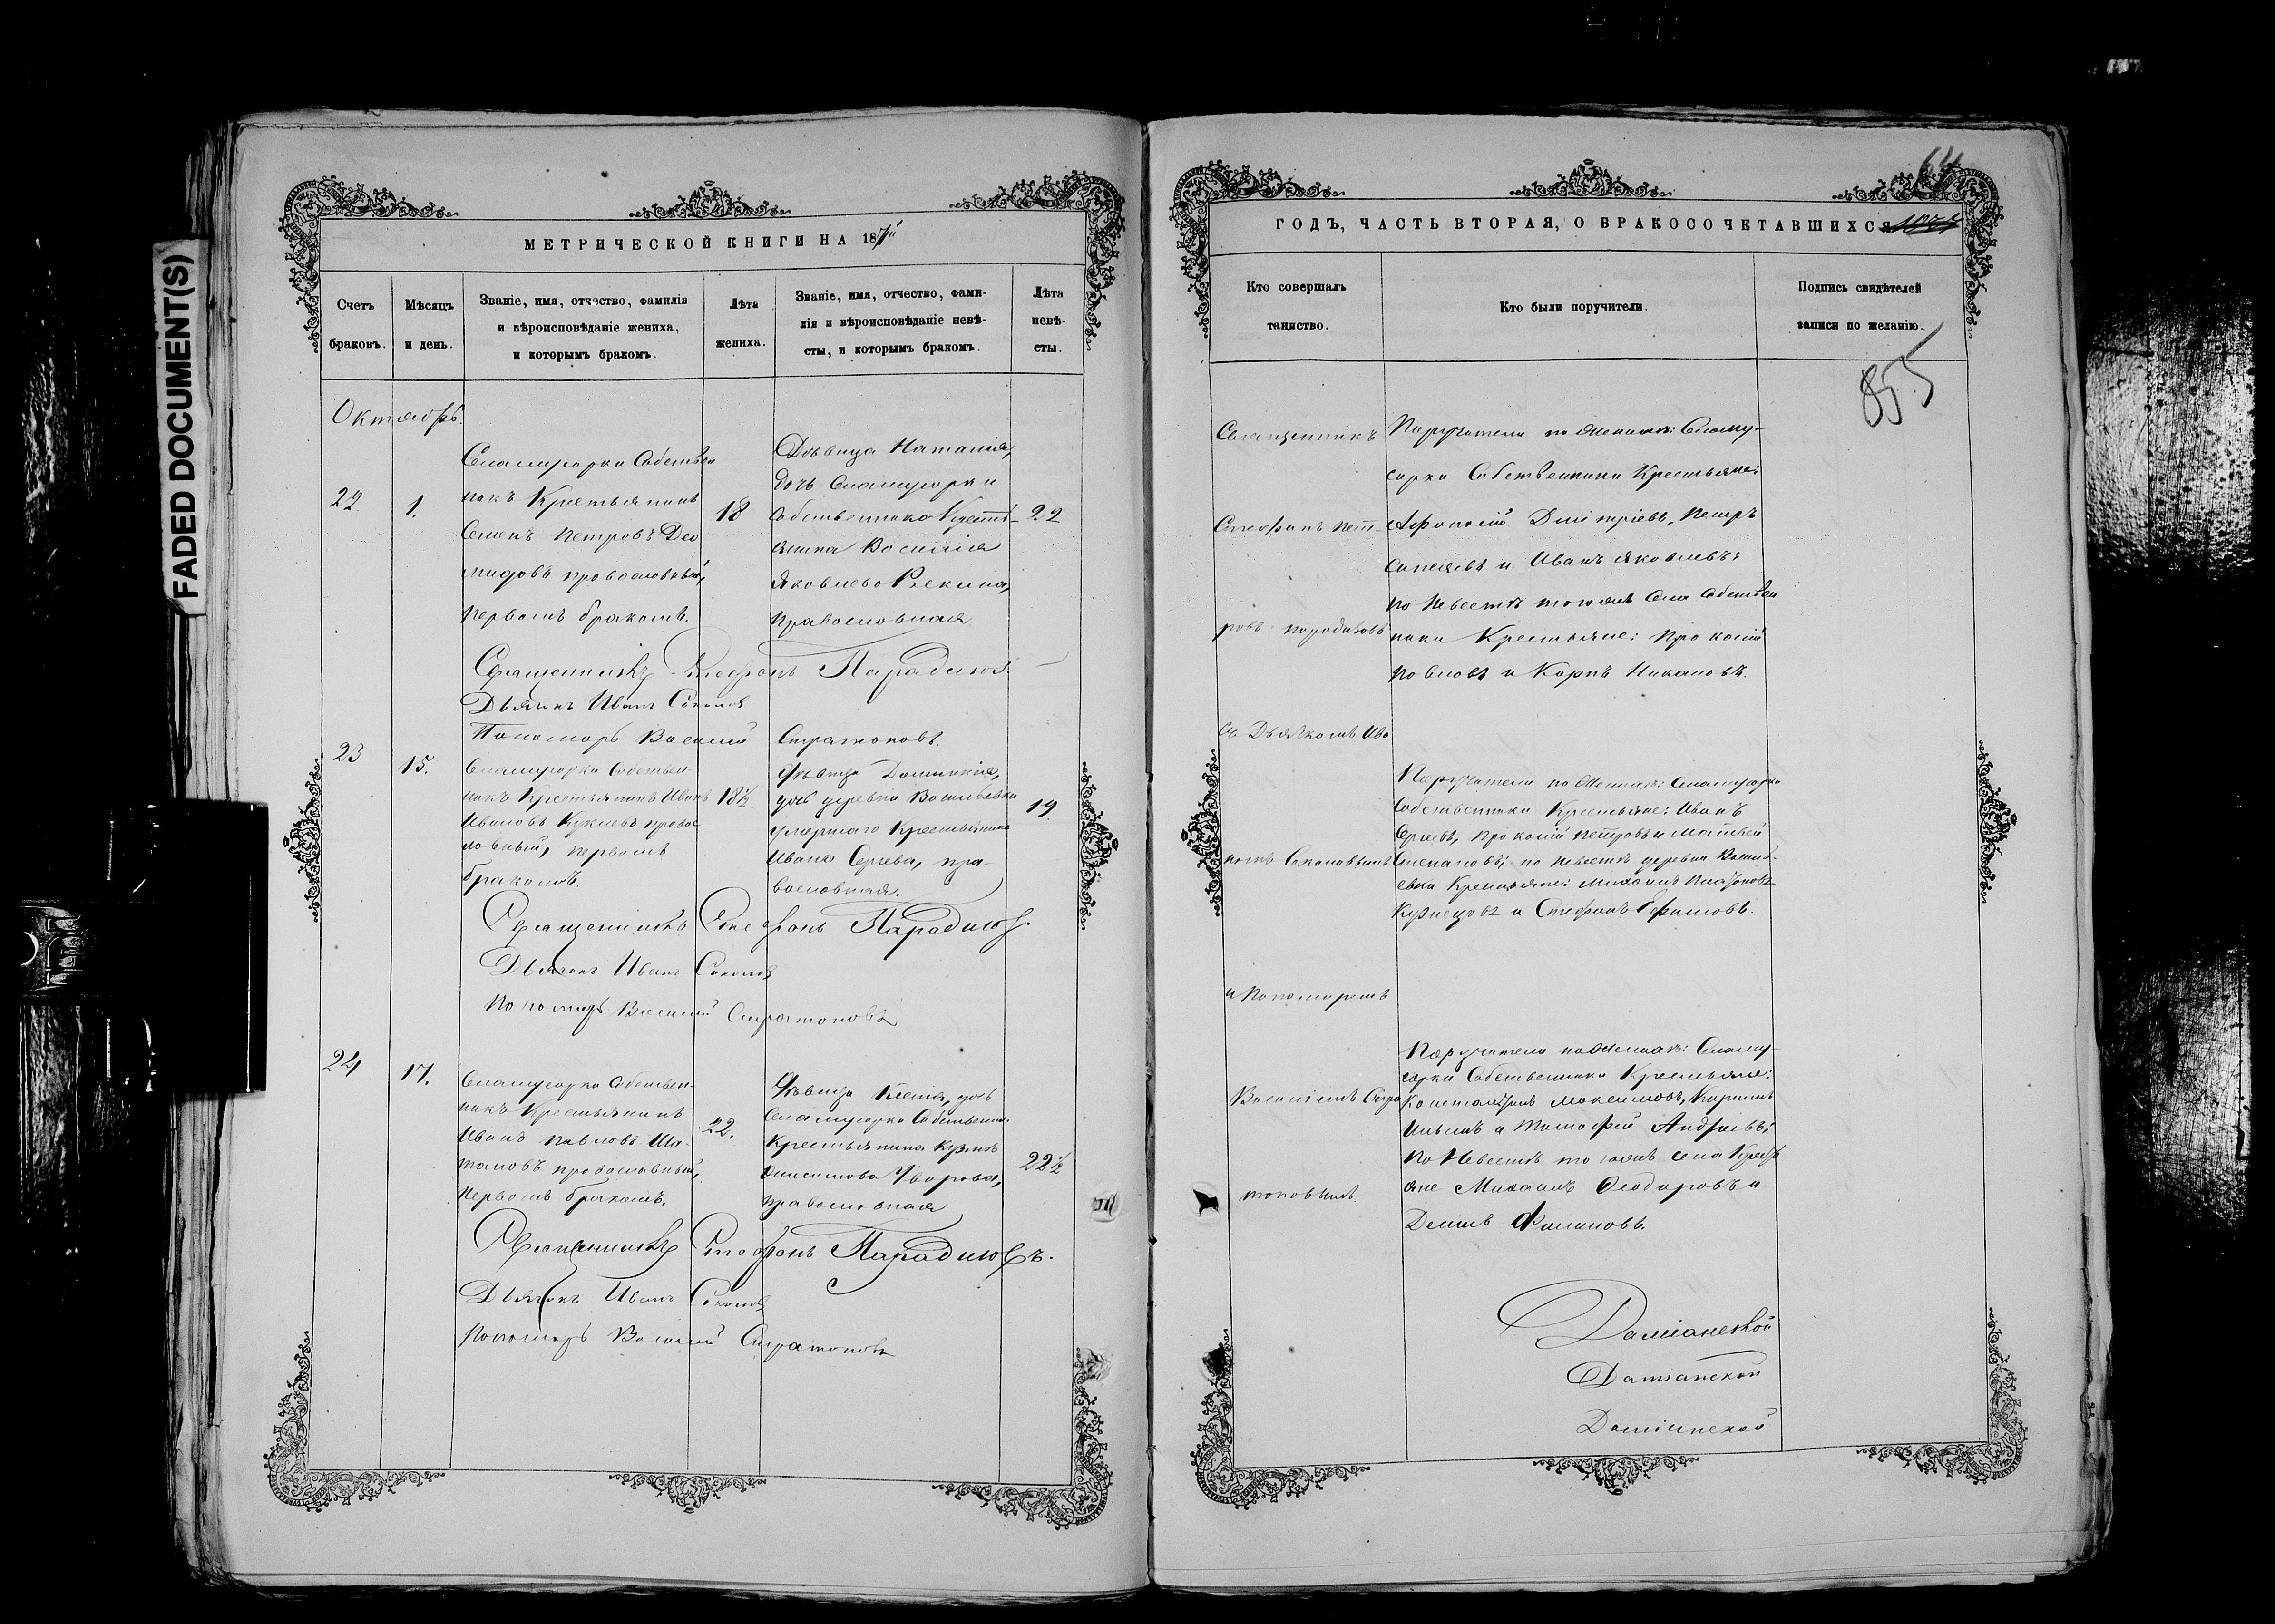 FADED DOCUMENT(S)
МЕТРИЧЕСКОЙ КНИГИ НА 187
Счетъ браковъ.
Мѣсяцъ и день.
Званіе, имя, отчество, фамилія
и вѣроисповѣданіе жениха,
и которымъ бракомъ.
Лѣта жениха.
Званіе, имя, отчество, фами-
лія и вѣроисповѣданіе невѣ-
сты, и которымъ бракомъ.
Лѣта невѣ-
сты.
Октябрь.
22.
1.
Собствен
никъ Крестьянинъ
Семенъ Петровъ Део
мидовъ православный,
первымъ бракомъ.
18
Дѣвица Наталія,
дочь
Собственника Кресть-
янина Василія
Яковлева
православная
22
Священникъ Стефанъ Парадизов
Дьячокъ Иванъ Соколов
Пономарь Василий Стратоновъ.
23
15.
Собствен-
никъ Крестьянинъ Иванъ
Ивановъ правос
лавный, первымъ
бракомъ.
18½
Дѣвица Домникія,
дочь деревни Васильевки
умершаго Крестьянина
Ивана Сергева, пра-
вославная.
19.
Священникъ Стефанъ Парадизов
Дьячокъ Иванъ Соколов
Пономарь Василий Стратоновъ
24
17.
Собствен-
никъ Крестьянинъ
Иванъ Павловъ Ша-
таловъ православный,
первымъ бракомъ.
22.
Дѣвица дочь
Собственника
Крестьянина Кузмы
Анисимова Уварова,
православная
22½
Священникъ Стефанъ Парадизовъ.
Дьячокъ Иванъ Соколов
Пономарь Василий Стратоновъ
ГОДЪ, ЧАСТЬ ВТОРАЯ, О БРАКОСОЧЕТАВШИХСЯ
Кто совершалъ
таинство.
Кто были поручители.
Подпись свидѣтелей
записи по желанію.
855
Священникъ
Стефанъ Пет-
ровъ
съ Дьячкомъ Ива
номъ Соколовымъ
и Пономаремъ
Василіемъ Стра
тоновымъ.
Поручители по женихѣ:
Собственники Крестьяне:
Дмитріевъ, Петръ
и Иванъ Яковлевъ;
по невестѣ тогоже села Собствен
ники Крестьяне: Прокопій
Павловъ и Карпъ
Поручители по женихѣ:
Собственники Крестьяне: Иванъ
Сергевъ, Прокопій Петровъ и Матвей
Степановъ; по невестѣ деревни Василь-
евки Крестьяне: Михаилъ Платоновъ
Кузнецовъ и Стефанъ Ефимовъ.
Поручители по женихѣ:
Собственники Крестьяне:
Константинъ Максимовъ,
и Тимофей Андреевъ;
По невестѣ тогоже села Кресть
яне Михаилъ Феодоровъ и
Филиповъ.
Даміанской
Даміанской
Даміанской